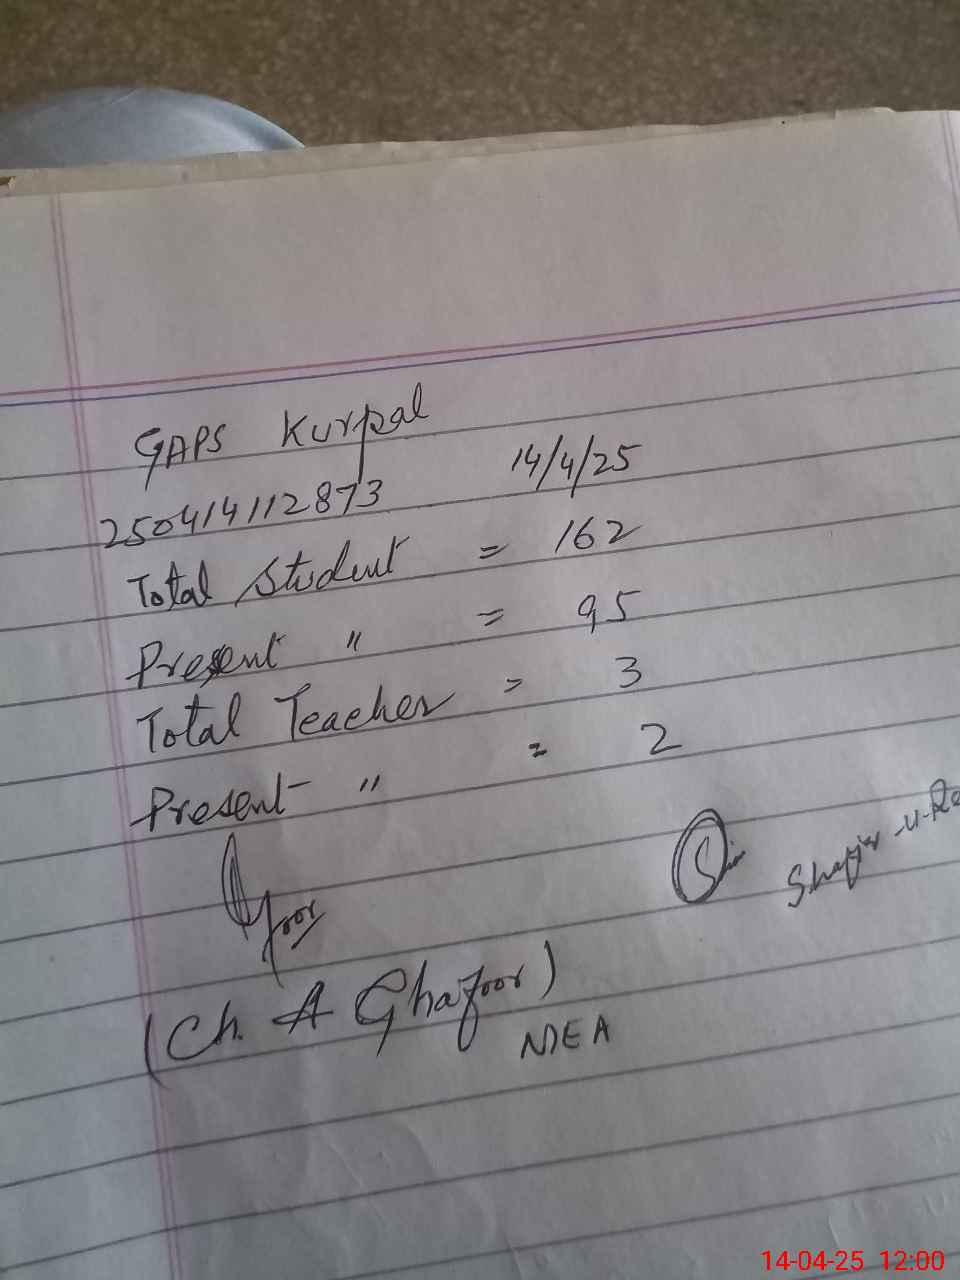 GAPS Kurpal
250414112873 14/4/25
Total Student = 162
Present " = 95
Total Teacher = 3
Present " = 2
(Ch. A Ghafoor)
NIEA
14-04-25 12:00